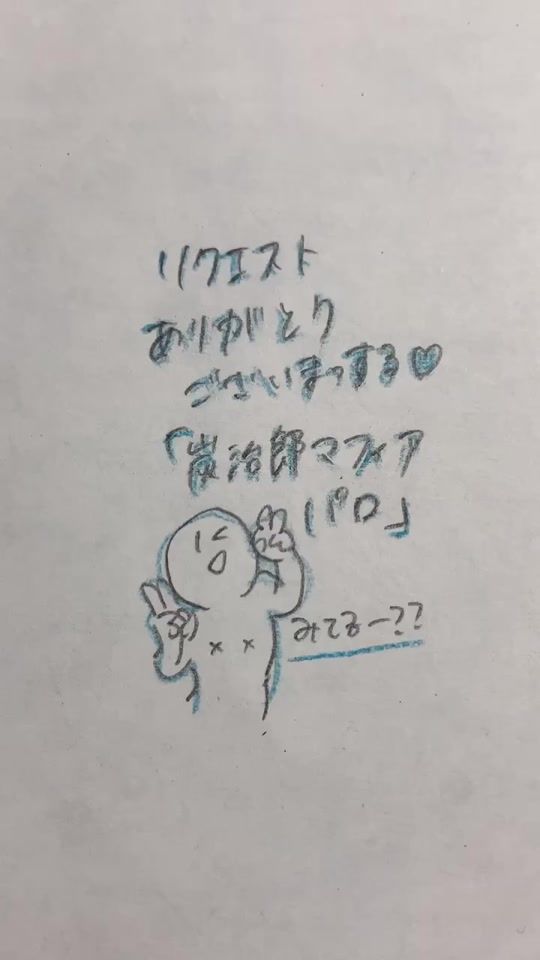 リクエスト
ありがとう
ございまっする♡
「炭治郎マフィア
パロ」
みてるー??